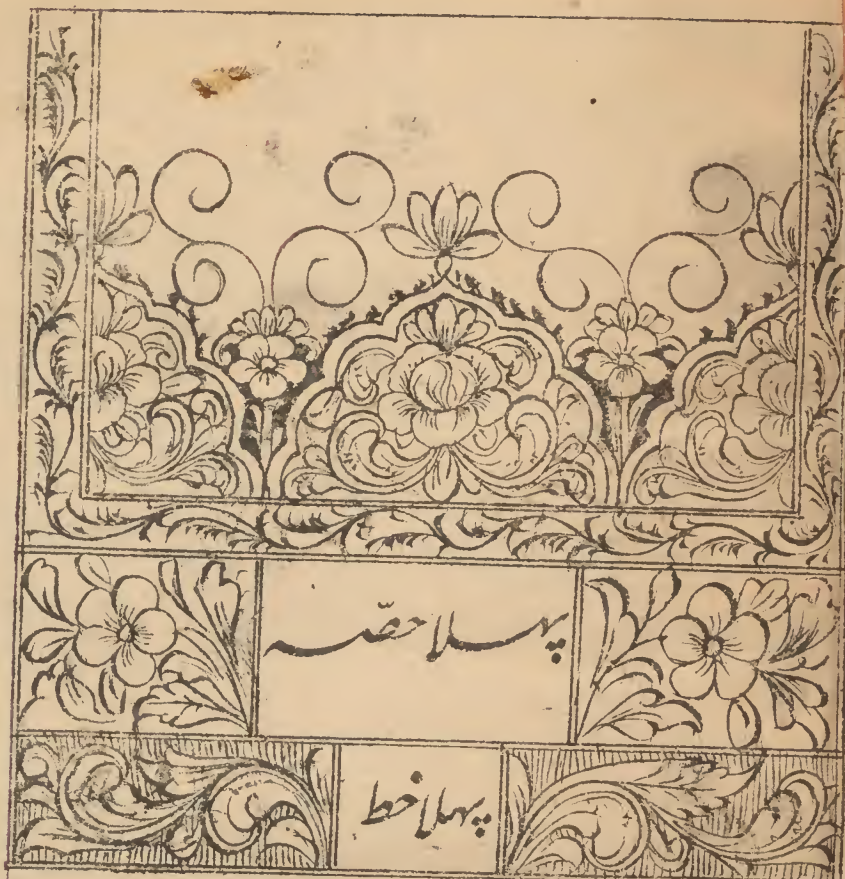 پہلا حصّہ
پہلا خط